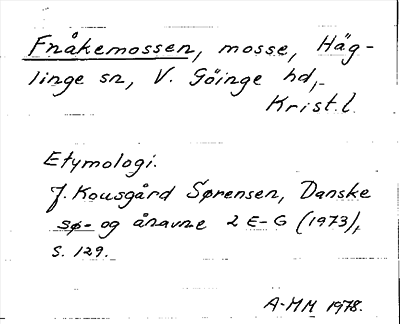 Fnåkemossen, mosse, Häg-
linge sn, V. Göinge hd,
Krist.l.
Etymologi.
J. Kousgård Sørensen, Danske
sø- og ånavne 2 E-G (1973),
s. 129.
A-MM 1978.